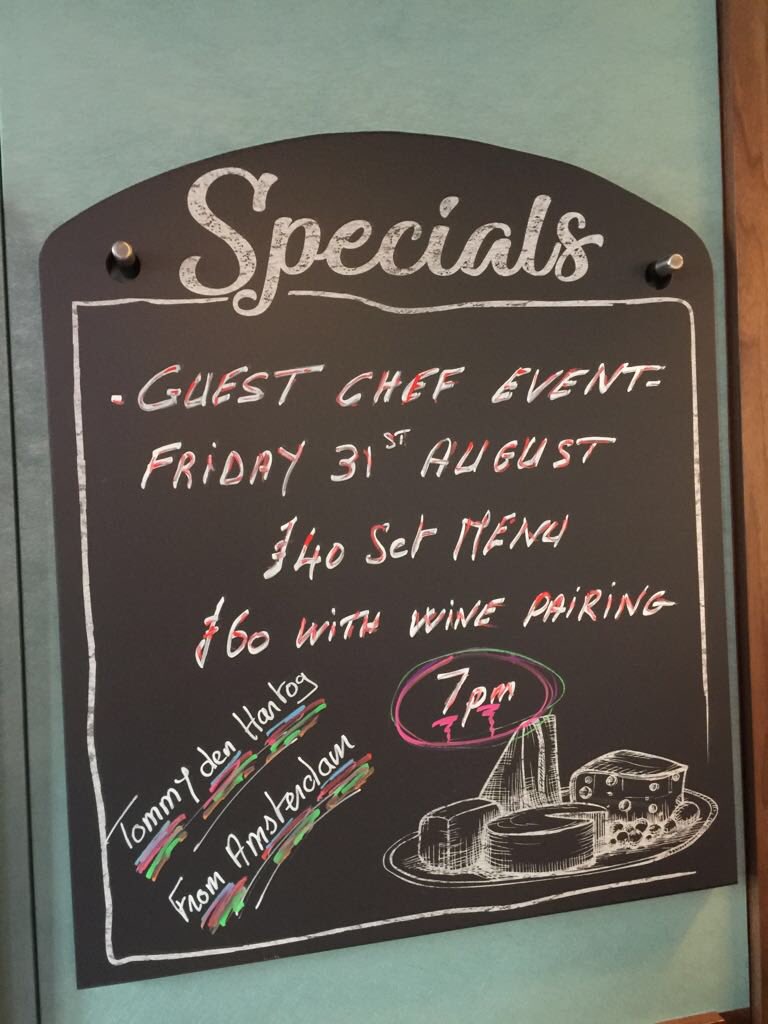 Specials
- GUEST CHEF EVENT -
FRIDAY 31ST AUGUST
£40 Set MENU
£60 WITH WINE PAIRING
7pm
Tommy den Hartog
From Amsterdam